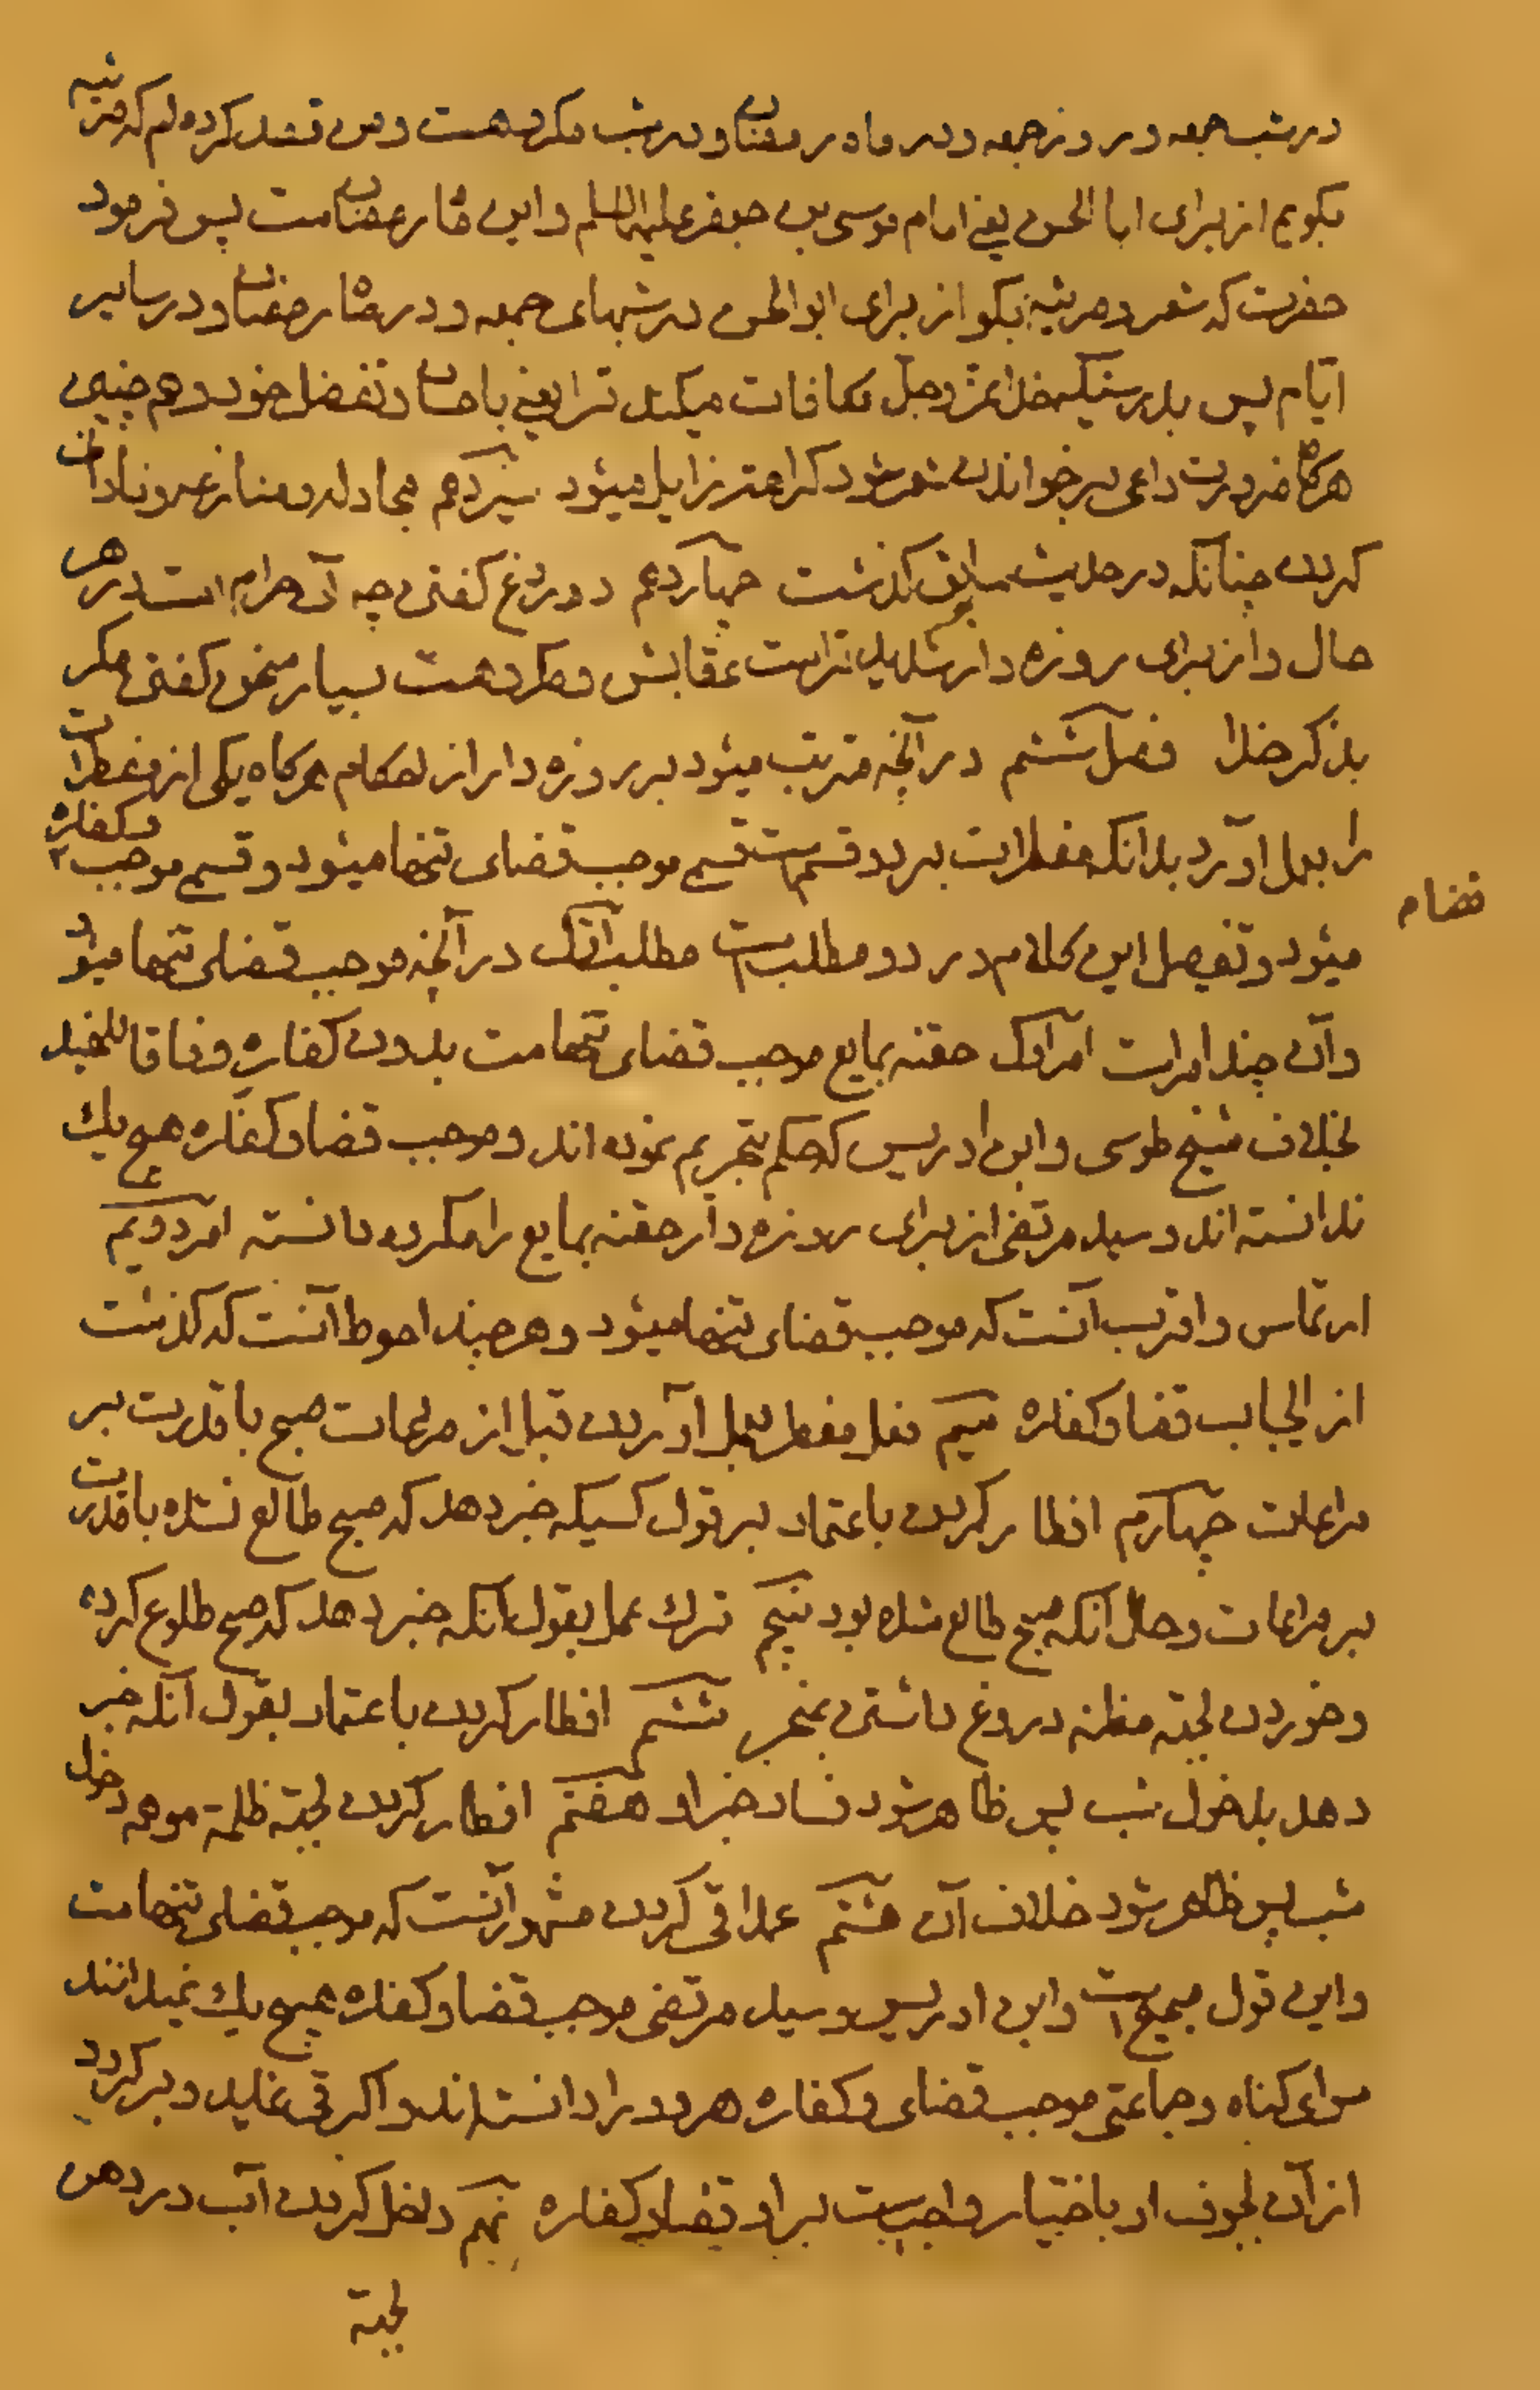 در شب جمعه و در روز جمعه و در ماه رمضان و در شب مکروهست و من قصد کرده‌ام که مرثیه
بکویم از برای ابا الحسن یعنی امام موسی بن جعفر علیهما السلم و این ماه رمضانست پس فرمود
حضرت که شعر و مرثیه بکو از برای ابو الحسن در شبهای جمعه و در ماه رمضان و در سایر
ایّام پس بدرستیکه خدا عز و جل مکافات میکند ترا یعنی باحسان و تفضل خود و هم چنین
هرکاه ضرورت داعی بر خواندن شعر شود کراهتش زایل میشود سیزدهم مجادله و منازعه و نادانی
کردن چنانکه در حدیث سابق کذشت چهاردهم دروغ کفتن چه آن حرام است در هر
حال و از برای روزه دار شدیدتر است عقابش و مکروهست بسیار سخن کفتن مکر
بذکر خدا فصل ششم در آنچه مترتب میشود بر روزه دار از احکام هرکاه یکی از مفطرات
را بعمل آورد بدانکه مفطرات بر دو قسم است قسمی موجب قضای تنها میشود و قسمی موجب قضا و کفاره
قضا م
میشود و تفصیل این کلام در دو مطلب است مطلب اوّل در آنچه موجب قضای تنها میشود
و آن چند امر است امر اوّل حقنه بمایع موجب قضای تنهاست بدون کفاره وفاقا للمفید
بخلاف شیخ طوسی و ابن ادریس که حکم بتحریم نموده اند و موجب قضا و کفاره هیچ یک
ندانسته اند و سید مرتضی از برای روزه دار حقنه بمایع را مکروه دانسته امر دویم
ارتماس و اقرب آنست که موجب قضای تنها میشود و هر چند احوط آنست که کذشت
از ایجاب قضا و کفاره سیم فعل مفطر بعمل آوردن قبل از مراعات صبح با قدرت بر
مراعات چهارم افطار کردن باعتماد بر قول کسیکه خبر دهد که صبح طالع نشده با قدرت
بر مراعات و حال آنکه صبح طالع شده بود پنجم ترک عمل بقول آنکه خبر دهد که صبح طلوع کرده
و خوردن بجهة مظنه دروغ داشتن بمخبر ششم افطار کردن باعتماد بقول آنکه خبر
دهد بدخول شب پس ظاهر شود فساد خبر او هفتم افطار کردن بجهة ظلمة موهمه دخول
شب پس ظاهر شود خلاف آن هشتم عمدا قی کردن مشهور آنست که موجب قضای تنهاست
و این قول صحیح است و ابن ادریس و سید مرتضی موجب قضا و کفاره هیچ یک نمیدانند
سوای کناه و جماعتی موجب قضای و کفاره هر دو را دانسته اند و اکر قی نماید و بر کردد
از آن بجوف او باختیار واجبست بر او قضا و کفاره نهم داخل کردن آب در دهن
بجهة